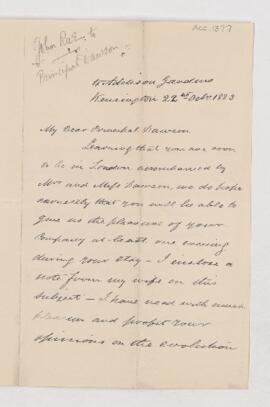 Acc. 1377
John Rae to
Principal Dawson
Addison Gardens
Kensington 22nd Octr. 1883
My Dear Principal Dawson
Learning that you are soon
to be in London accompanied by
Mrs and Miss Dawson, we do hope
earnestly that you will be able to
give us the pleasure of your
Company at least one evening
during your stay – I enclose a
note from my wife on this
subject – I have read with much
pleasure and profit your
opinions on the evolution